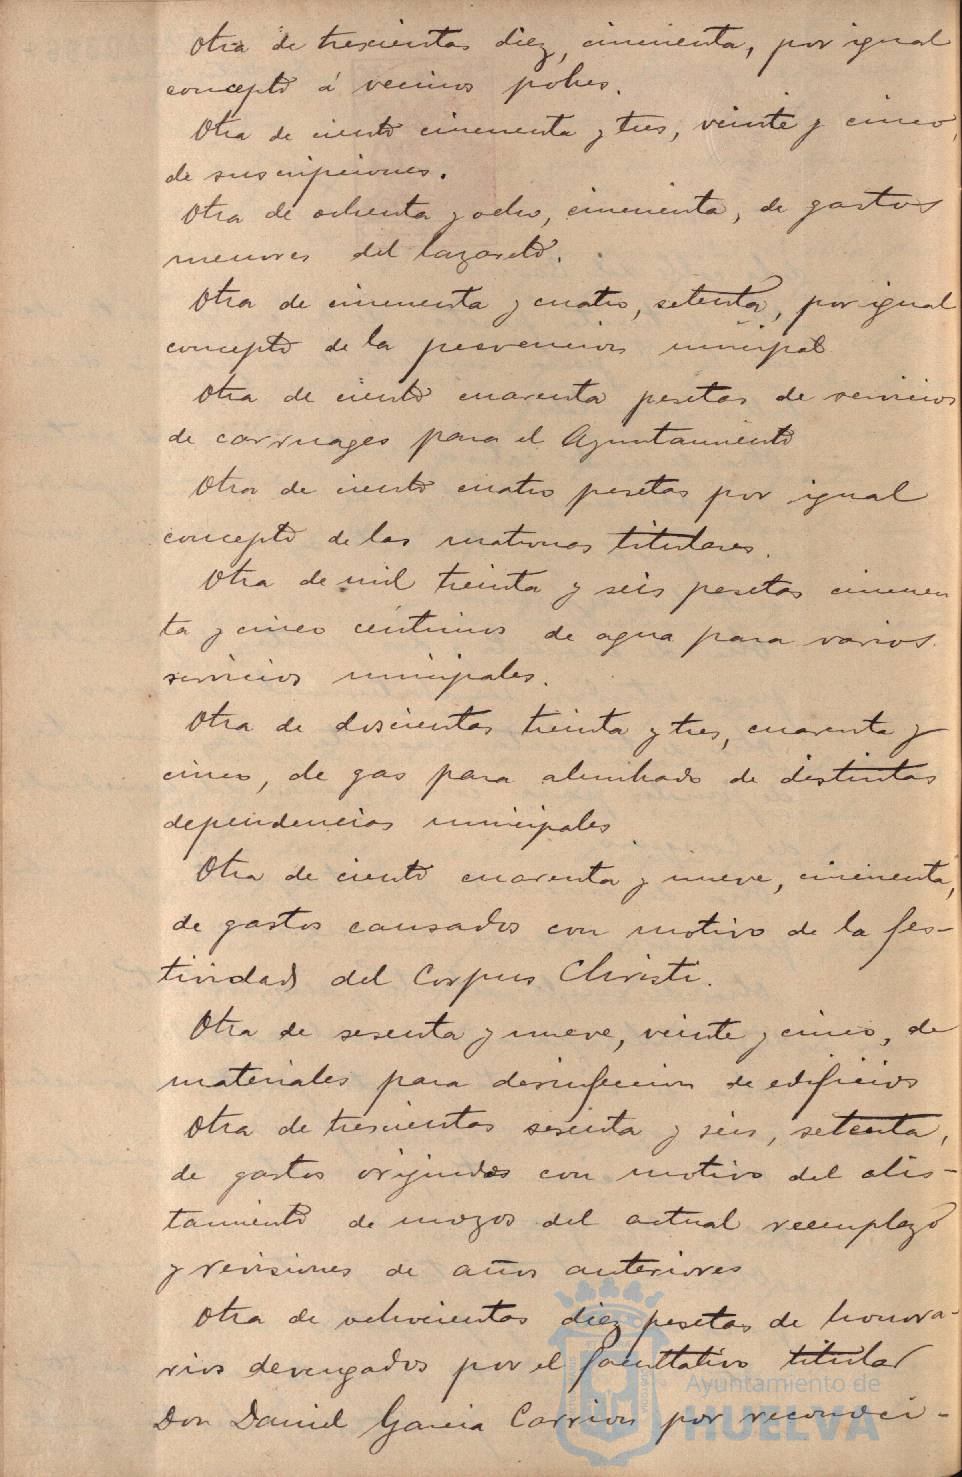 Otra de trescientas diez, cincuenta, por igual
concepto á vecinos pobres.
Otra de ciento cincuenta y tres, veinte y cinco,
de suscripciones.
Otra de ochenta y ocho, cincuenta, de gastos
menores del lazareto.
Otra de cincuenta y cuatro, setenta, por igual
concepto de la prevencion municipal
Otra de ciento cuarenta pesetas de servicios
de carruages para el Ayuntamiento
Otra de ciento cuatro pesetas por igual
concepto de las matronas titulares.
Otra de mil treinta y seis pesetas cincuen
ta y cinco céntimos de agua para varios
servicios municipales.
Otra de doscientas treinta y tres, cuarenta y
cinco, de gas para alumbrado de distintas
dependencias municipales
Otra de ciento cuarenta y nueve, cincuenta,
de gastos causados con motivo de la fes-
tividad del Corpus Christi.
Otra de sesenta y nueve, veinte y cinco, de
materiales para desinfeccion de edificios
Otra de trescientas sesenta y seis, setenta,
de gastos originados con motivo del alis-
tamiento de mozos del actual reemplazo
y revisiones de años anteriores
Otra de ochocientas diez pesetas de honora-
rios devengados por el facultativo titular
Don Daniel Garcia Carrion por reconoci-
Ayuntamiento de
HUELVA